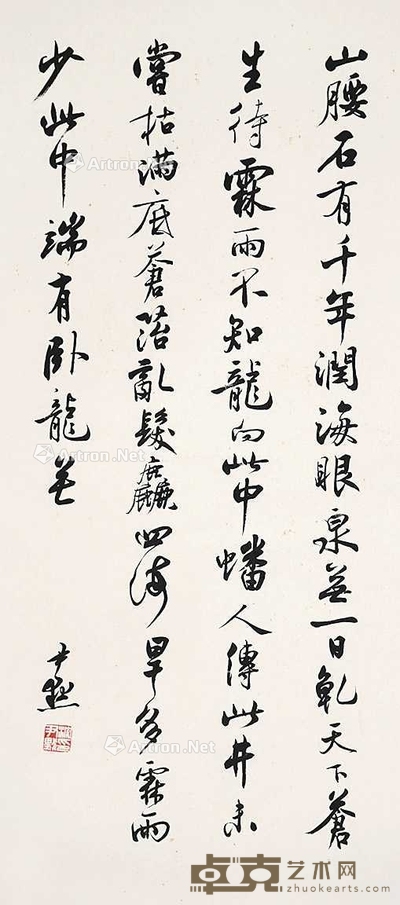 山腰石有千年潤海眼泉無一日乾天下蒼
生待霖雨不知龍向此中蟠人傳此井未
嘗枯滿底蒼苔亂髮麤四海旱多霖雨
少此中端有卧龍無
尹默
Artron.Net
Artron.Net
Artron.Net
Artron.Net
卓克艺术网
www.zhuokearts.com